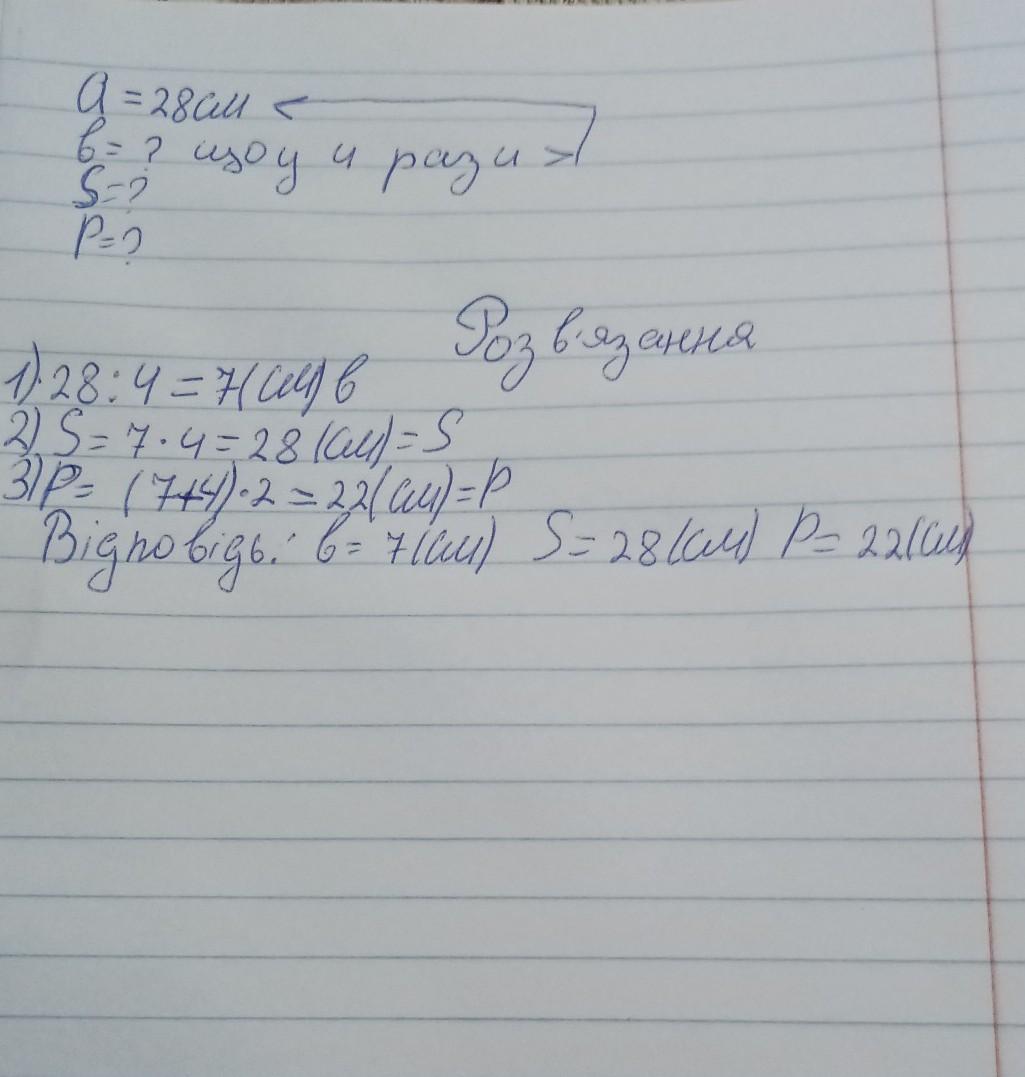 a = 28см
b = ? що у 4 рази >
S = ?
P = ?
Розв'язання
1) 28 : 4 = 7(см) b
2) S = 7 · 4 = 28 (см) = S
3) P = (7+4) · 2 = 22(см) = P
Відповідь: b = 7(см) S = 28(см) P = 22(см)